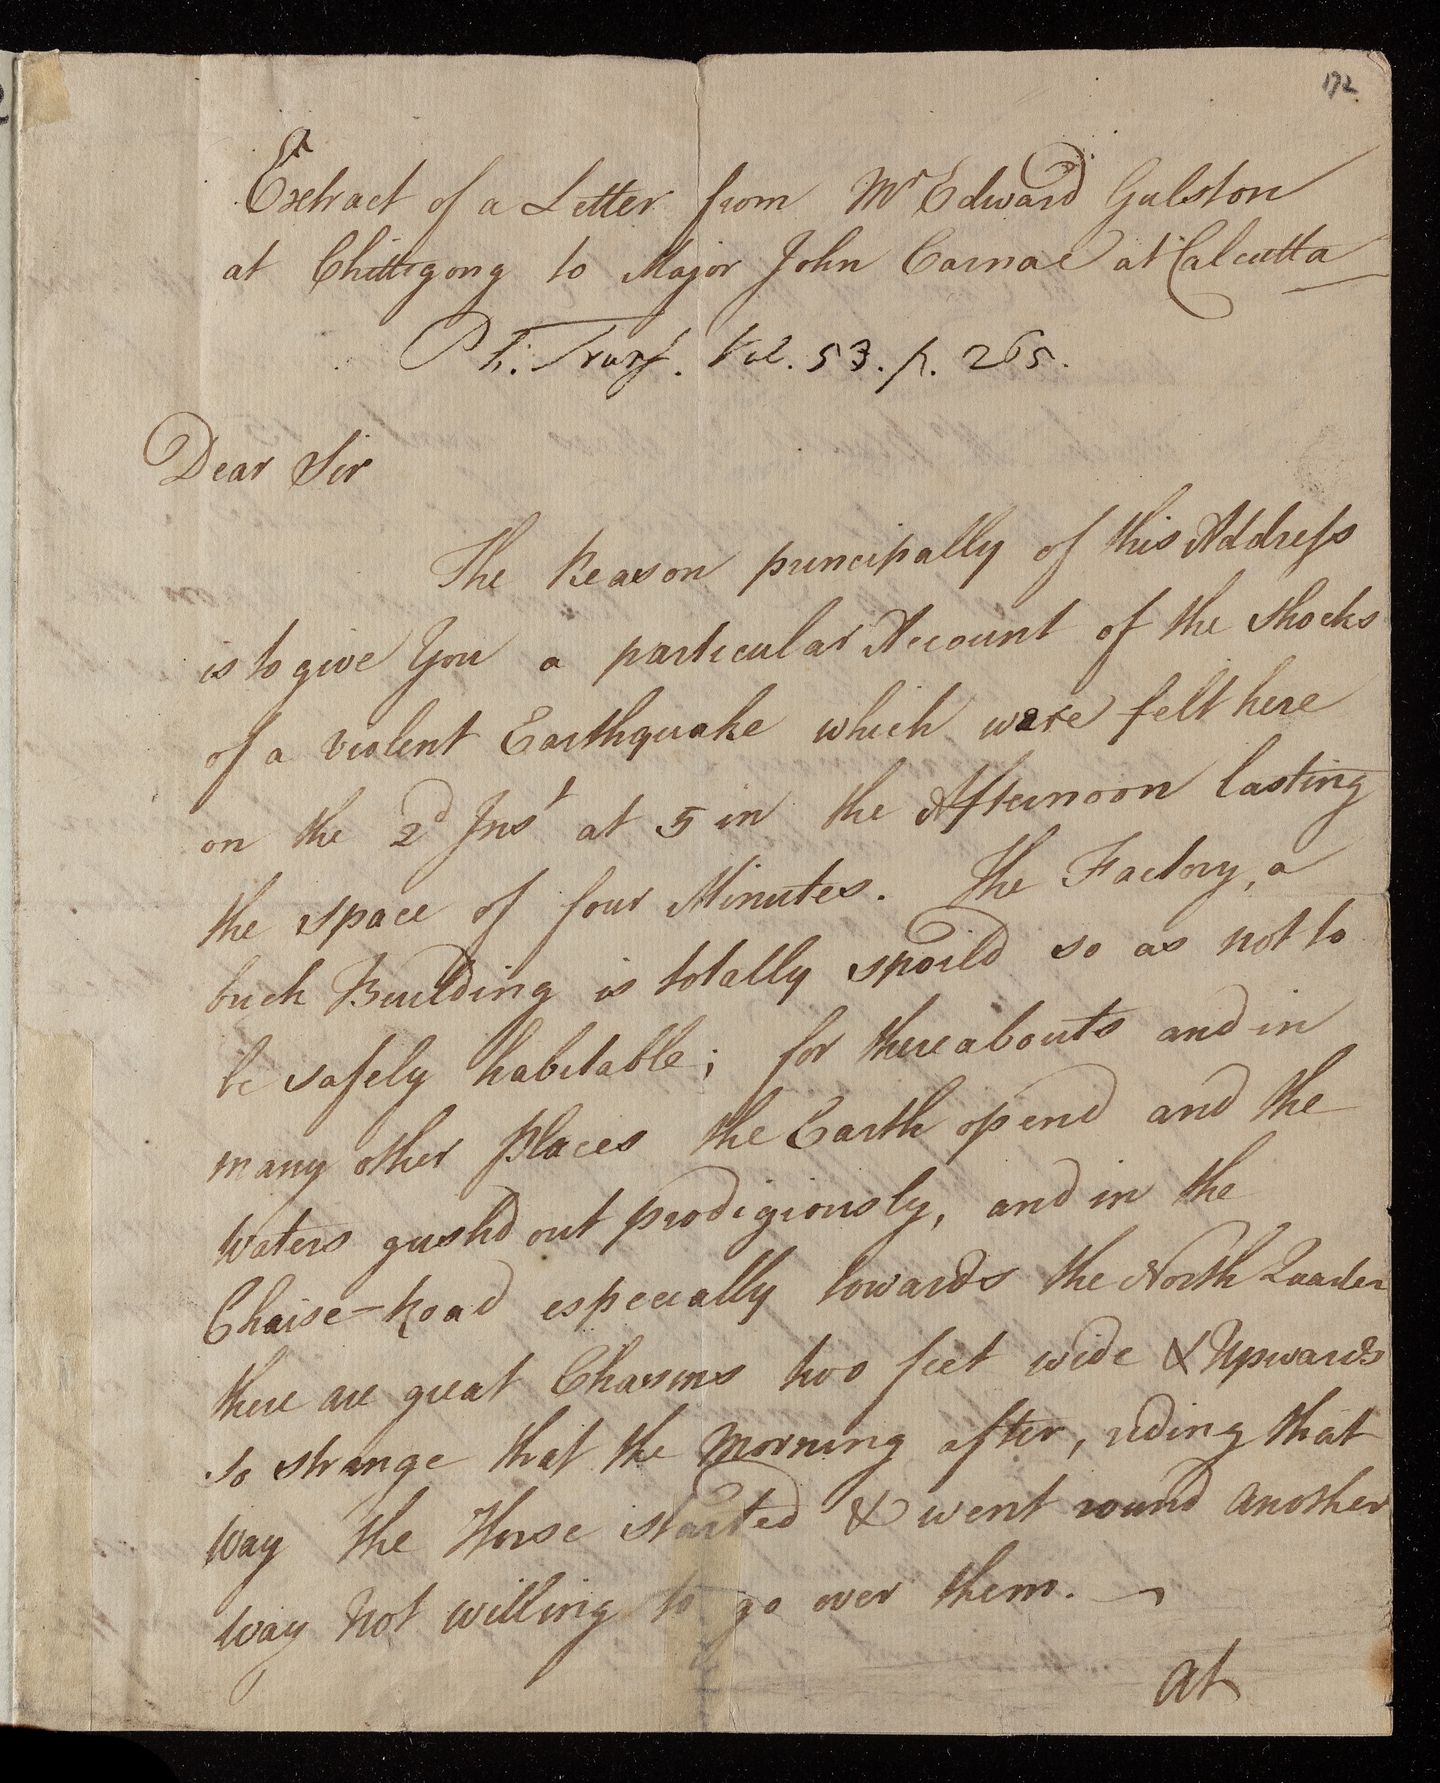 172
Extract of a Letter from Mr Edward Gulston
at Chittigong to Major John Carnac at Calcutta
Ph. Transf. Vol. 53. p. 265.
Dear Sir
The Reason principally of this Address
is to give You a particular Account of the Shocks
of a violent Earthquake which were felt here
on the 2d Inst at 5 in the Afternoon lasting
the space of four Minutes. The Factory, a
brick Building is totally spoild so as not to
be safely habitable; for thereabouts and in
many other Places the Earth opend and the
Waters gushd out prodigiously, and in the
Chaise-Road especially towards the North Quarter
there are great Chasms two feet wide & Upwards
so strange that the Morning after, riding that
way the Horse started & went round another
way not willing to go over them. —
at